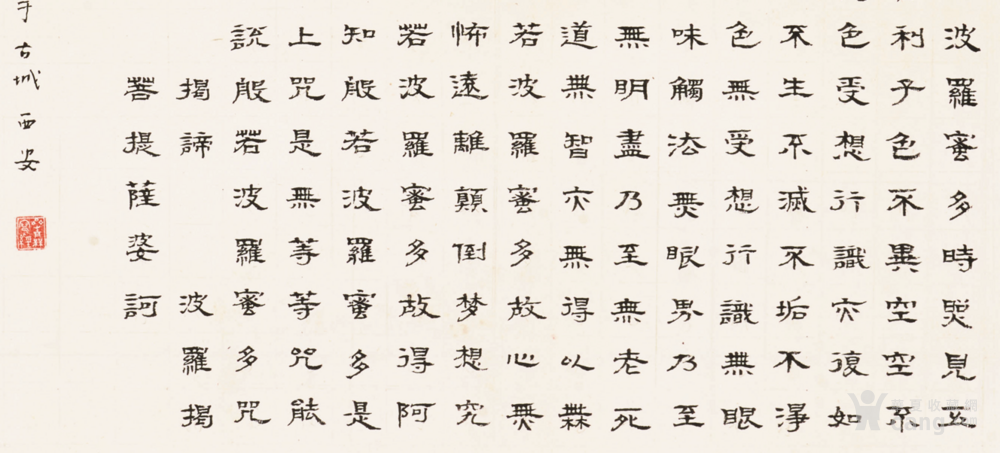 波羅蜜多時照見五
利子色不異空空不
色受想行識亦復如
不生不滅不垢不淨
色無受想行識無眼
味觸法無眼界乃至
無明盡乃至無老死
道無智亦無得以無
若波羅蜜多故心無
怖遠離顛倒梦想究
若波羅蜜多故得阿
知般若波羅蜜多是
上咒是無等等咒能
說般若波羅蜜多咒
揭諦 波羅揭
菩提薩婆訶
于古城西安
華夏收藏網